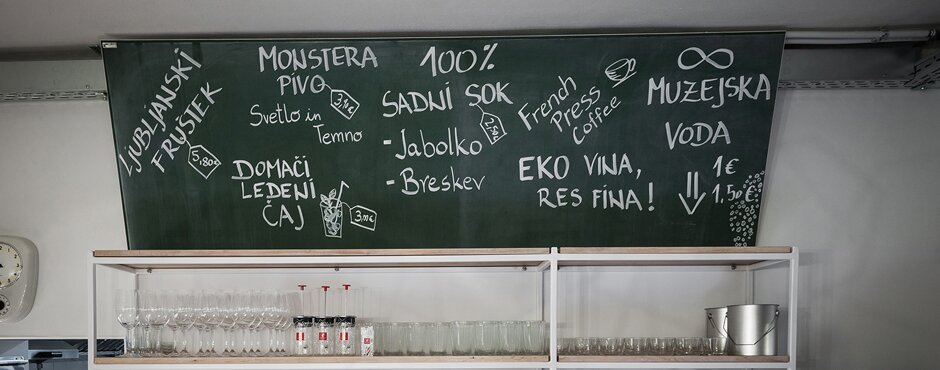 LJUBLJANSKI
FRUŠTEK
5,80€
MONSTERA
PIVO
3,10€
Svetlo in
Temno
DOMAČI
LEDENI
ČAJ
100%
SADNI SOK
2,50€
- Jabolko
- Breskev
French
Press
Coffee
EKO VINA,
RES FINA!
∞
MUZEJSKA
VODA
1€
1,50€